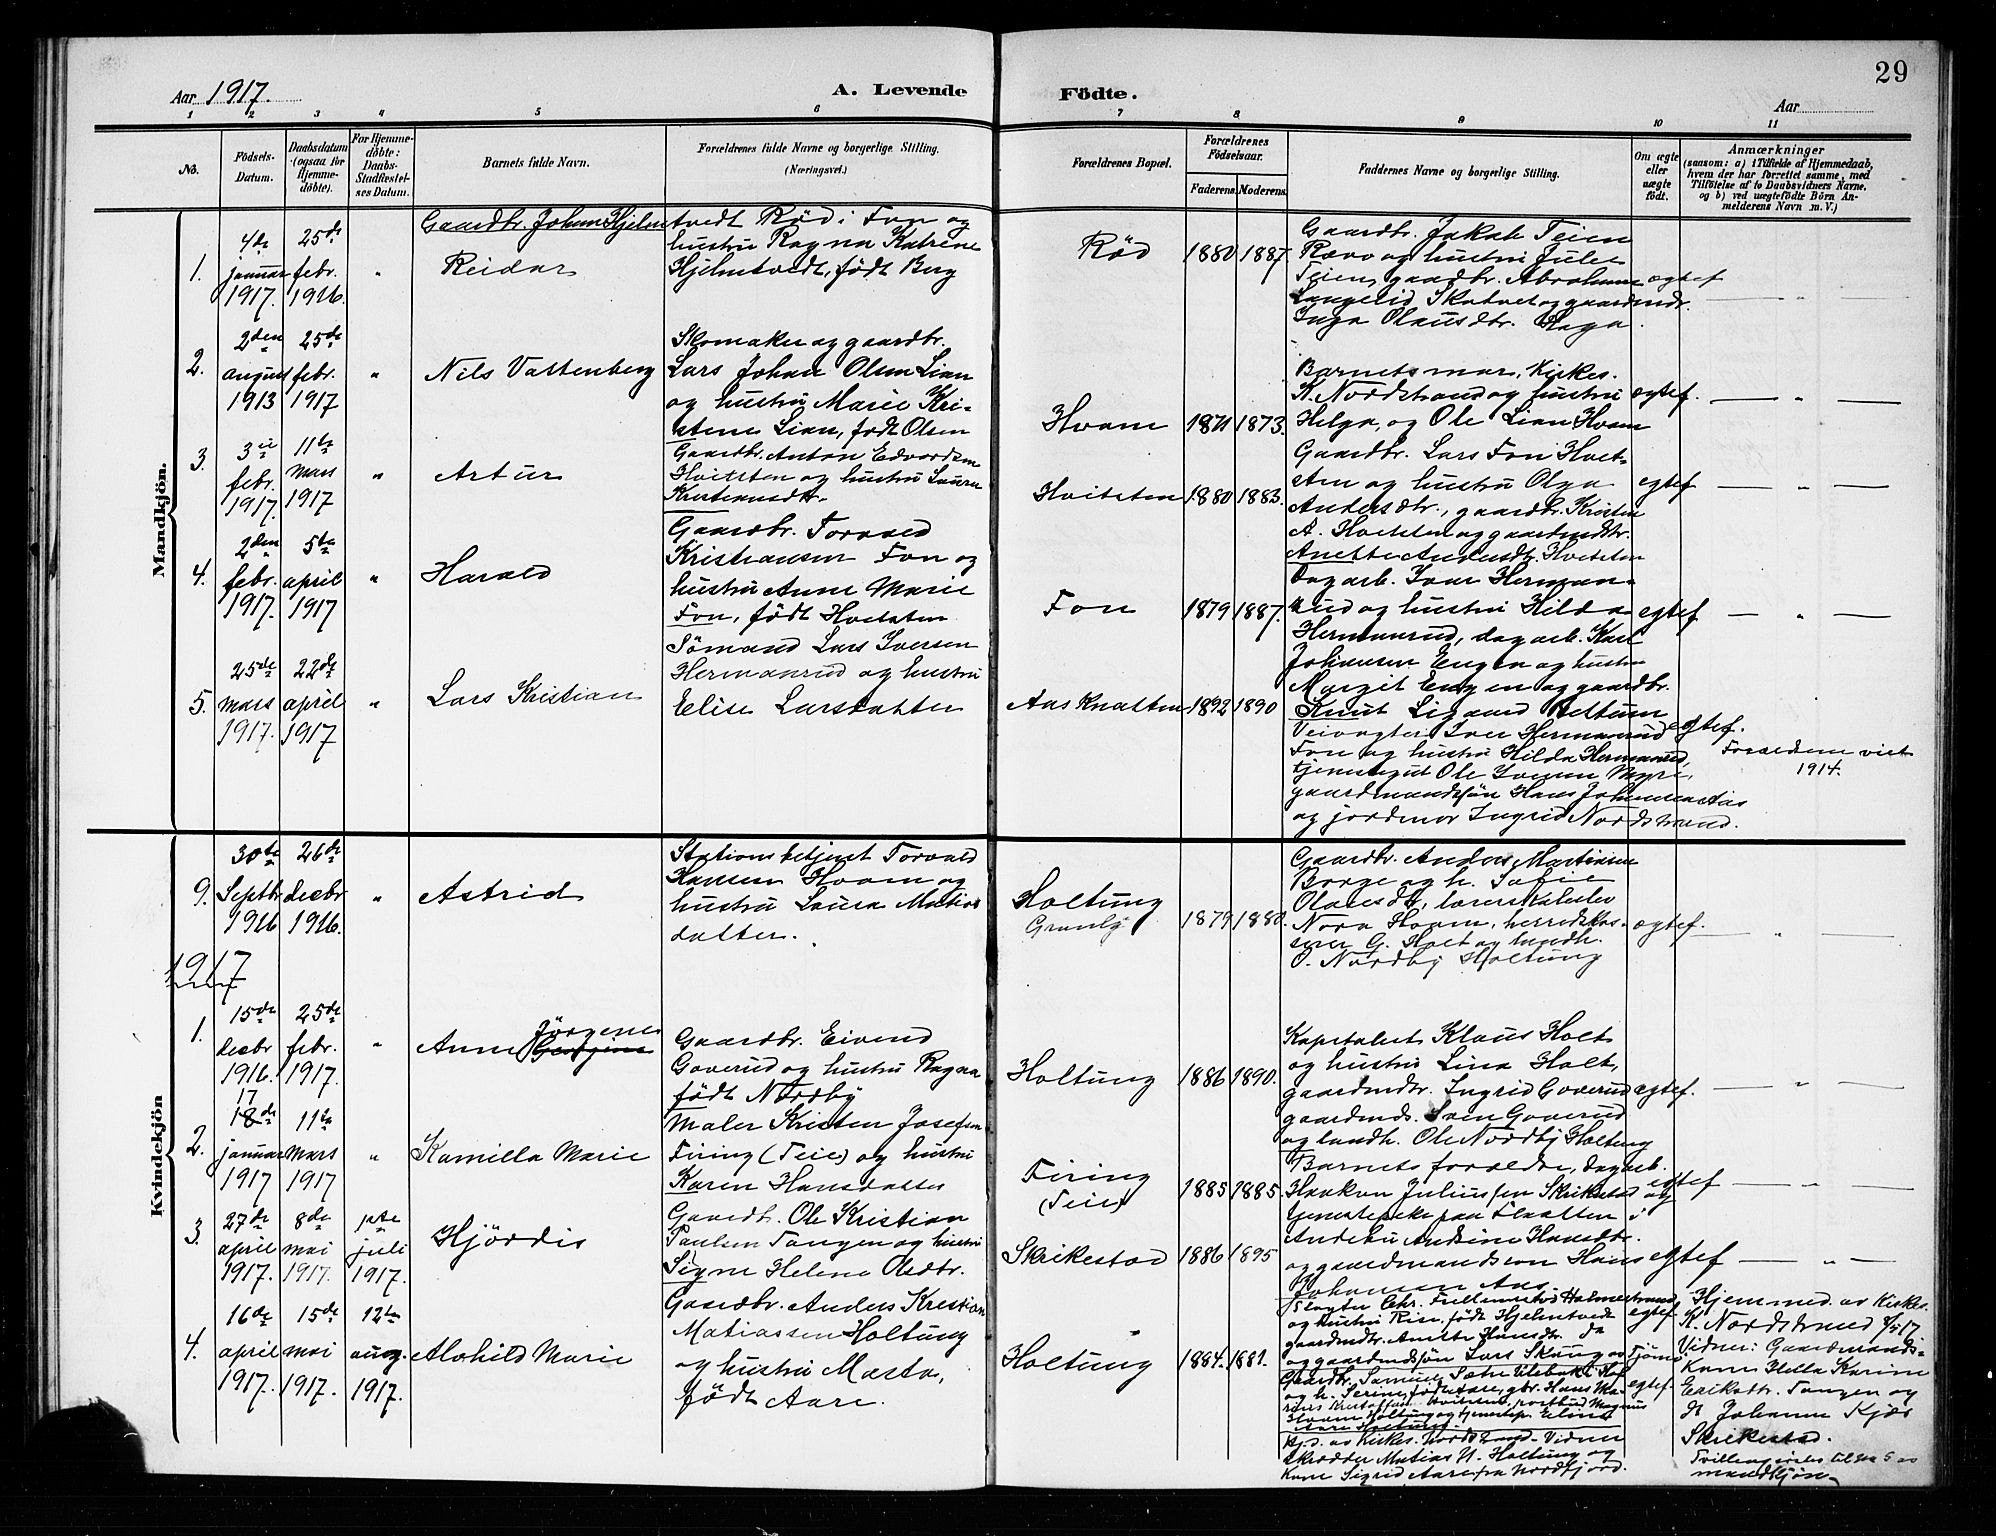 29
Aar 1917.
A. Levende Födte.
Aar
1 2 3 4 5 6 7 8. 9 10 11
No.
Födsels-
Datum.
Daabsdatum
(ogsaa for
Hjemme-
döbte).
For Hjemme-
döbte:
Daabs-
Stadfæstel-
ses Datum.
Barnets fulde Navn.
Forældrenes fulde Navne og borgerlige Stilling.
(Næringsvei.)
Forældrenes Bopæl.
Forældrenes
Födselsaar.
Faderens.
Moderens.
Faddernes Navne og borgerlige Stilling.
Om ægte
eller
uægte
födt.
Anmærkninger
(saasom: a) i Tilfælde af Hjemmedaab,
hvem der har forrettet samme, med
Tilföielse af to Daabsvidners Navne,
og b) ved uægtefödte Börn An-
melderens Navn m. V.)
Mandkjön.
1.
4de
januar
1917.
25de
febr.
1916.
"
Reidar
Gaardbr. Johan Hjelmtvedt Röd i Fon og
hustru Ragna Katrine
Hjelmtvedt, född Berg
Röd
1880
1887.
Gaardbr. Jakob Teien
Rævo og hustru Julie
Teien, gaardbr. Abraham
Langelid Skatvet og gaardmdr.
Inga Olausdtr. Haga.
ægtef
2.
2den
august
1913
25de
febr.
1917
"
Nils Vattenberg
Skomaker og gaardbr.
Lars Johan Olsen Lian
og hustru Marie Kri-
stene Lian, født Olsen
Hvam
1871
1873.
Barnets mor, Kirkes.
K. Nordstrand og hustru
Helga, og Ole Lian Hvam
ægtef.
3.
3die
febr.
1917.
11te
mars
1917
"
Artur
Gaardbr. Anton Edvardsen
Hvitsten og hustru Laura
Kristiansdtr.
Hvitsten
1880
1883.
Gaardbr. Lars Fon Hvit-
sten og hustru Olga
Andersdtr., gaardbr. Kristen
A. Hvitsten og gaardmdtr.
Anette Andersdtr. Hvitsten
egtef
4.
2den
febr.
1917.
5te
april
1917
"
Harald
Gaardbr. Torvald
Kristiansen Fon og
hustru Anne Marie
Fon, født Hvitsten
Fon
1879
1887.
Dagarb. Ivar Herman-
rud og hustru Hilda
Hermanrud, dagarb. Karl
Johansen Engen og hustru
Margit Engen og gaardbr.
Knut Ligaard
egtef
5.
25de
mars
1917.
22de
april
1917
"
Lars Kristian
Sömand Lars Iversen
Hermanrud og hustru
Elise Larsdatter
Aas Knatten
1892
1890
Veivogter Iver Hermanrud
Fon og hustru Hilda Hermanrud,
tjenestegut Ole Iversen Myre,
gaardmandssön Hans Johansen Aas
og jordmor Ingrid Nordstrand.
egtef.
Forældrene viet
1914.
Kvindekjön
9.
30te
Septbr
1916
26de
decbr
1916.
"
Astrid
Stationsbetjent Torvald
Hansen Hvam og
hustru Laura Matias
datter.
Holtung
Granly
1879
1880.
Gaardbr. Anders Martinsen
Borge og h. Sofie
Olausdtr, lærerskolelev
Nora Hvam, herredskas-
serer G. Holt og landh.
O. Nordby Holtung
ægtef.
1917
1.
15de
decbr
1916.
25de
febr.
1917.
"
Anne Jörgene
Gaardbr. Eivend
Goverud og hustru Ragna
född Nordby
Holtung
1886
1890.
Kapitalist Klaus Holt
og hustru Lina Holt,
gaardmdtr. Ingrid Goverud
gaardmds. Sven Goverud
og landh. Ole Nordby Holtung
ægtef.
2.
17
18de
januar
1917
11te
mars
1917
"
Kamilla Marie
Maler Kristen Josefsen
Firing (Teie) og hustru
Karen Hansdatter
Firing
(Teie)
1885
1885
Barnets forældre, dagarb.
Haakon Juliussen Skrikestad og
tjenestepike paa Flaatten i
Andebu Andrine Hansdtr.
og gaardmandssön Hans
Johansen Aas.
egtef
3.
27de
april
1917.
8de
mai
1917.
1ste
juli
1917.
Hjördis
Gaardb. Ole Kristian
Paulsen Tangen og hustru
Signe Helene Olsdtr.
Skrikestad
1886
1895
Slagter Chr. Holmestrand,
og hustru Rise, født Hjelmtvedt
gaardmdtr. Anette Hansdtr. do
og gaardmdssön Lars Skaug
egtef
Hjemmed. av Kirkes.
K. Nordstrand 8/5 17
Vidner: Gaardmands-
kone Hella Karine
Eriksdtr. Tangen og
do Johanne Kjær
Skrikestad.
4.
16de
april
1917.
15de
mai
1917.
12te
aug.
1917.
Alvhild Marie
Gaardbr. Anders Kristian
Matiassen Holtung
og hustru Marta,
född Aare.
Holtung
1884.
1881.
Gaardbr. Samuel Sætre
og h. Serine, född Aare, gbr. Hans Ma-
rius Kristoffersen Hvitsten, postbud Magnus
Hvam Holtung og tjenestep. Elina
Aare Holtung.
Hj.d. av Kirkes. Nordstrand. Vidner
skrædder Matias N. Holtung og
Kone Sigrid Aare fra Nordfjord.
egtef.
Tvillingsöster til No 5 av
mandkjön